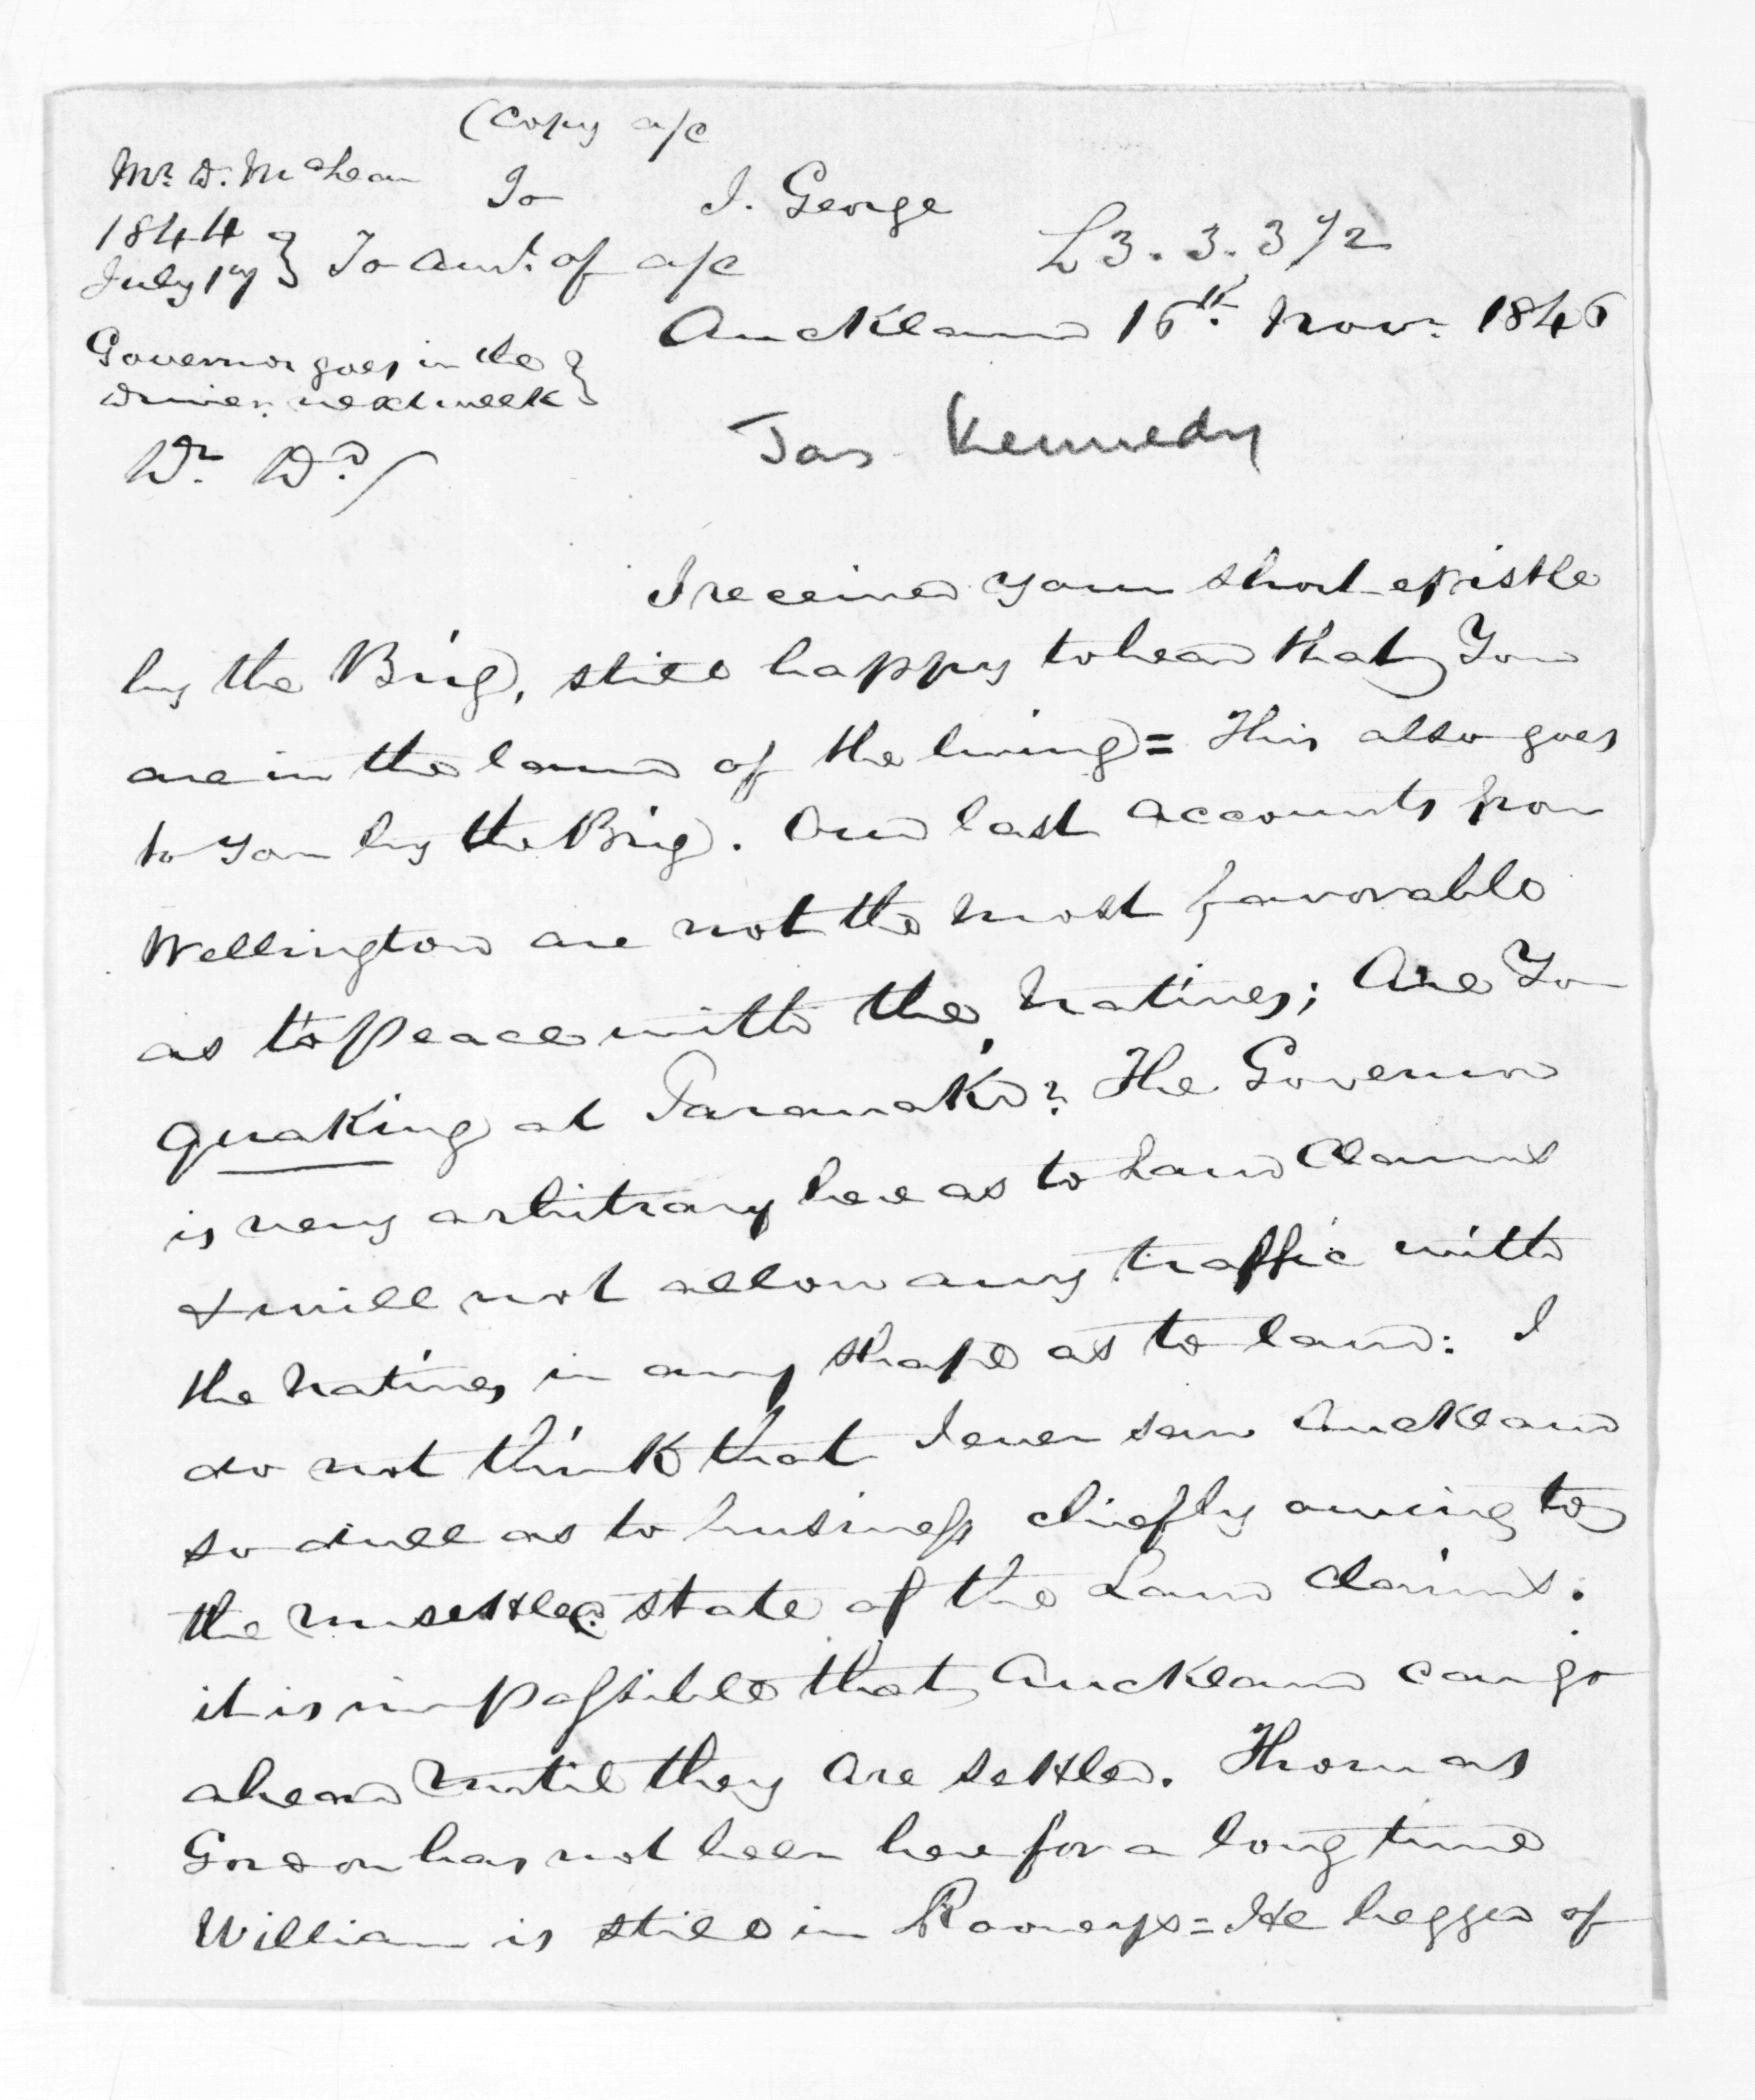 (Copy a/c
Mr. D. McLean To J. George
1844
July 17 } To Amt. of a/c £3.3.3 1/2
Auckland 16th. Novr. 1846
Governor goes in the
Driver next week }
Jas Kennedy
Dr. Dd./
I received your short epistle
by the Brig, still happy to hear that You
are in the land of the living = This also goes
to You by the Brig. Our last accounts from
Wellington are not the most favorable
as to peace with the Natives; Are You
quaking at Taranaki? The Governor
is very arbitrary here as to Land Claims
& will not allow any traffic with
the Natives in any shape as to land: I
do not think that I ever saw Auckland
so dull as to business chiefly owing to
the unsettled state of the Land Claims:
it is impossible that Auckland can go
ahead until they are settled. Thomas
Gordon has not been here for a long time
William is still in = He begged of